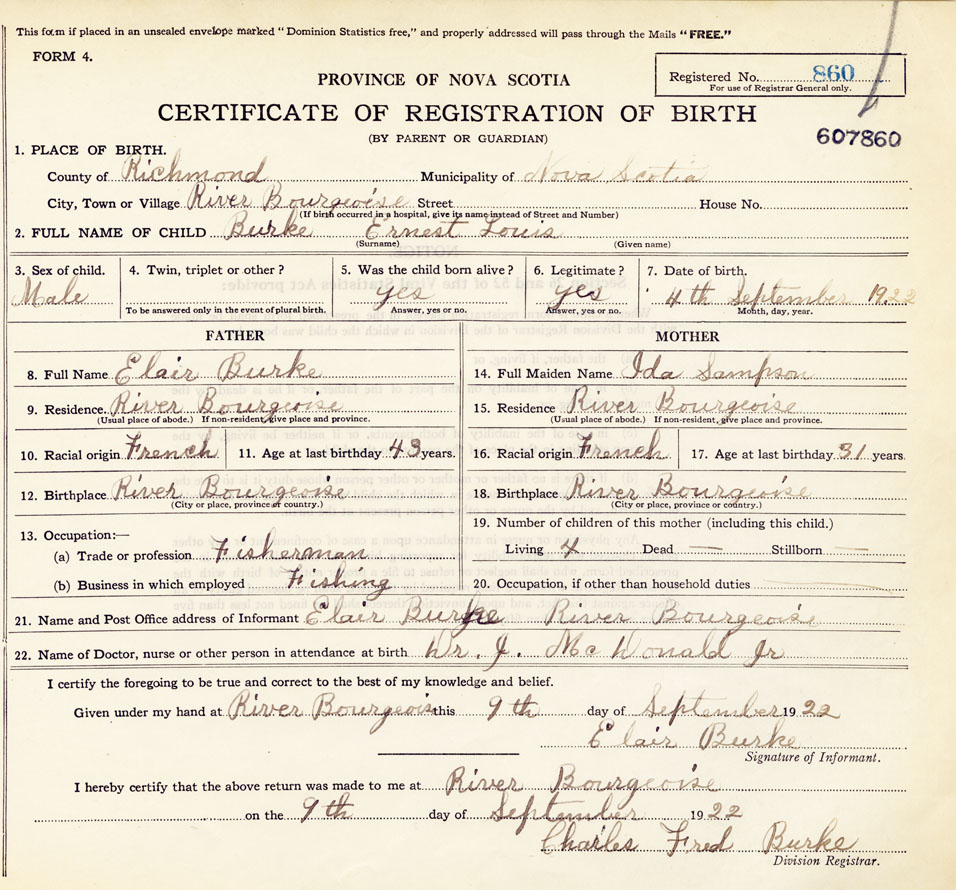 This form if placed in an unsealed envelope marked "Dominion Statistics free," and properly addressed will pass through the Mails "FREE."
FORM 4.
Registered No. 860
For use of Registrar General only.
PROVINCE OF NOVA SCOTIA
CERTIFICATE OF REGISTRATION OF BIRTH
(BY PARENT OR GUARDIAN)
607860
1. PLACE OF BIRTH.
County of Richmond Municipality of Nova Scotia
City, Town or Village River Bourgeoise Street House No.
(If birth occurred in a hospital, give its name instead of Street and Number)
2. FULL NAME OF CHILD Burke Ernest Louis
(Surname) (Given name)
3. Sex of child. 4. Twin, triplet or other? 5. Was the child born alive? 6. Legitimate? 7. Date of birth.
Male yes yes 4th September 1922
To be answered only in the event of plural birth. Answer, yes or no. Answer, yes or no. Month, day, year.
FATHER MOTHER
8. Full Name Elair Burke 14. Full Maiden Name Ida Sampson
9. Residence. River Bourgeoise 15. Residence River Bourgeoise
(Usual place of abode.) If non-resident, give place and province. (Usual place of abode.) If non-resident, give place and province.
10. Racial origin French 11. Age at last birthday 43 years. 16. Racial origin French 17. Age at last birthday 31 years.
12. Birthplace River Bourgeoise 18. Birthplace River Bourgeoise
(City or place, province or country.) (City or place, province or country.)
13. Occupation:— 19. Number of children of this mother (including this child.)
(a) Trade or profession Fisherman Living 4 Dead — Stillborn —
(b) Business in which employed Fishing 20. Occupation, if other than household duties
21. Name and Post Office address of Informant Elair Burke River Bourgeoise
22. Name of Doctor, nurse or other person in attendance at birth Dr. J. McDonald Jr
I certify the foregoing to be true and correct to the best of my knowledge and belief.
Given under my hand at River Bourgeois this 9th day of September 1922
Elair Burke
Signature of Informant.
I hereby certify that the above return was made to me at River Bourgeoise
on the 9th day of September 1922
Charles Fred Burke
Division Registrar.